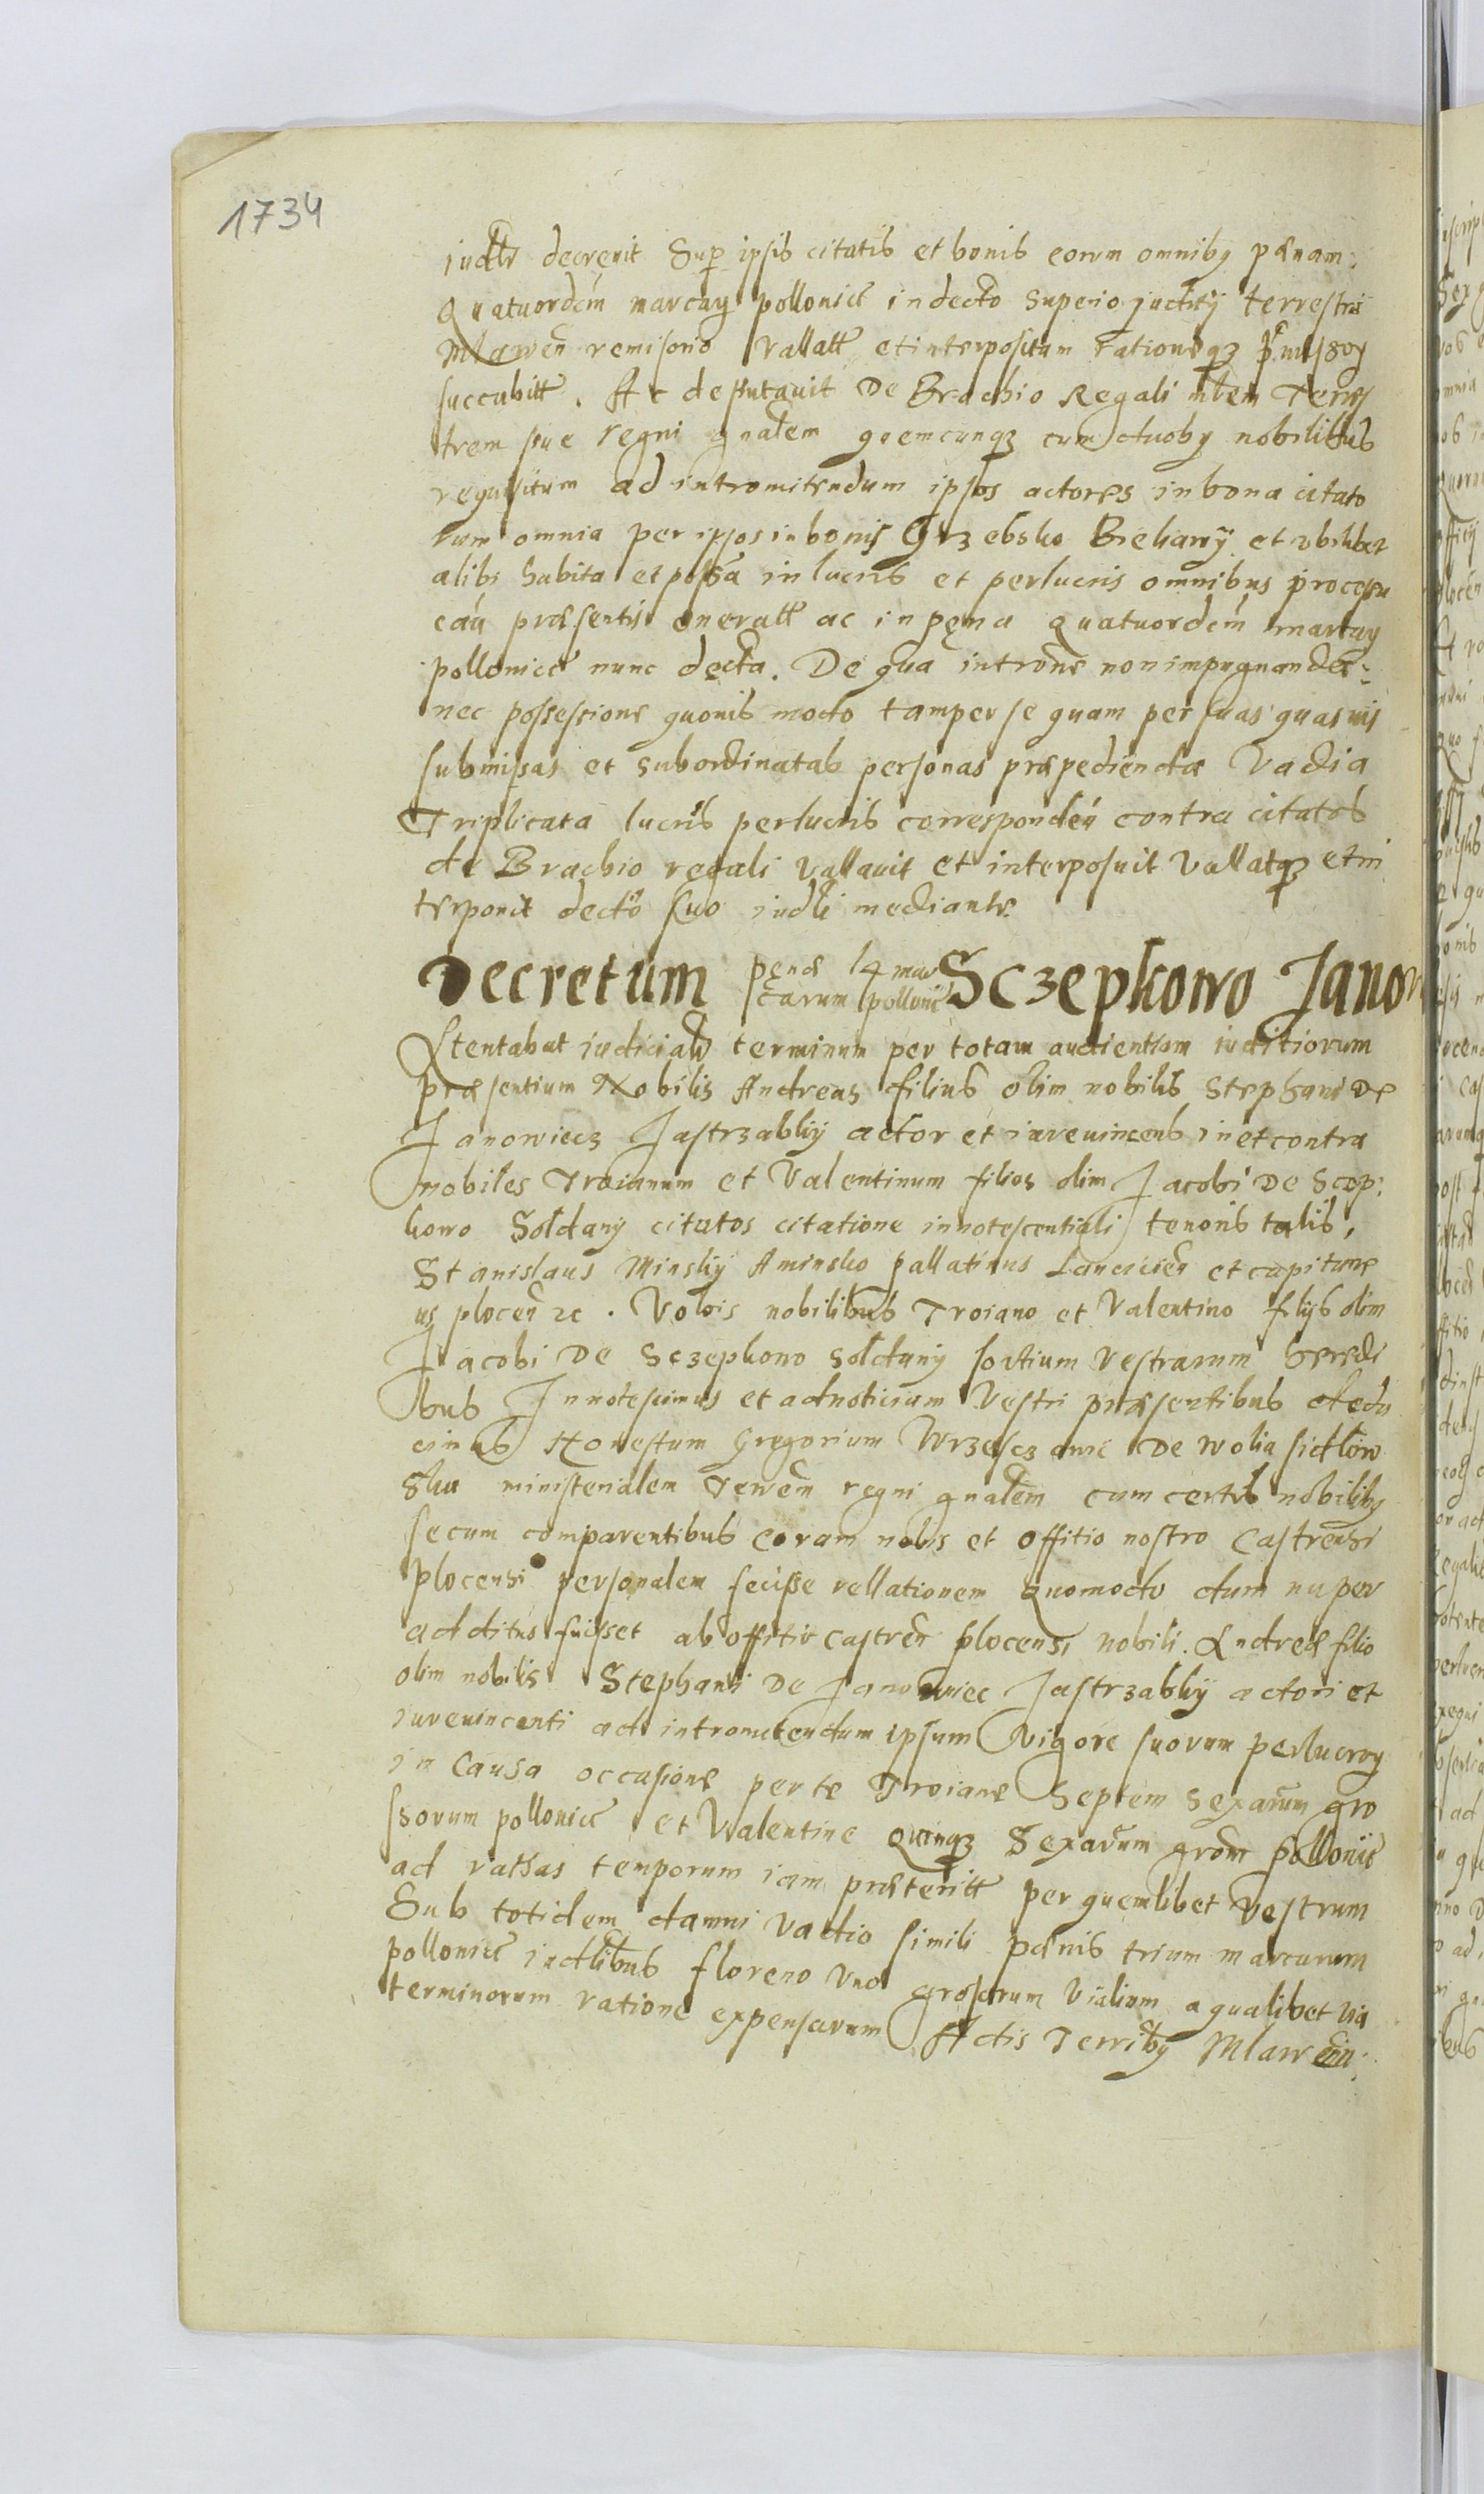 1734
iudltr decrevit Sup ipsis citatis et bonis eorum omniby pænam
Quatuordcim marcarum pollonicl in decto superio juditij terrestris
Mlawen remisorio vallatt et interpositam rationeqz
succubitt. Ac deputavit De Brachio Regali mtem Terres
trem sive regni gnalem quemcunqz cum duoby nobilibus
requisitum ad intromitendum ipsos actores in bona citato
rum omnia per ipsos in bonis Grzebsko Biekany et ubilibet
alibi habita et possa in lucris et perlucris omnibus processu
cau præsentis oneratt ac in pęna quatuordcim marcarum
pollonicl nunc decta. De qua introne non impugnandæ
nec possessione quovis modo tam per se quam per suas quasvis
submissas et subordinatas personas præpediendæ Vadia
Triplicata lucris perlucris correspondeń contra citatos
de Brachio regali vallavit et interposuit Vallatqz et in
terponit decto suo iudli mediante.
Decretum pęnæ 14 mar
carum pollonicl Sczepkowo Jano
Attentabat iudicialr terminum per totam audientiam iuditiorum
præsentium Nobilis Andreas filius olim nobilis Stephani De
Janowiecz Jastrzabky actor et iurevincens in et contra
nobiles Troianum et Valentinum filios olim Jacobi De Scep
kowo Soldany citatos citatione innotescentiali tenoris talis,
Stanislaus Minsky Aminsko pallatinus Lancicien et capitane
us plocen zc. Vobis nobilibus Troiano et Valentino filijs olim
Jacobi De Sczepkowo Soldany sortium vestrarum heredi
bus Innotescimus et ad noticiam Vestri præsentibus dedu
cimus Honestum Gregorium Wrzescz de wolia sidlow
ska ministerialem terrem regni gnalem cum certis nobiliby
secum comparentibus coram nobis et offitio nostro Castrensi
plocensi personalem fecisse rellationem Quomodo dum nuper
additus fuisset ab offitio castren plocensi nobili Andreæ filio
olim nobilis Stephani De Janowiec Jastrzabky actori et
iurevincenti ad intromitendum ipsum vigore suorum perlucrorum
in Causa occasione per te Troiane Septem sexarum gro
ssorum pollonicl et Valentine quinqz Sexarum gross pollonicl
ad rathas temporum iam præteritt per quemlibet Vestrum
Sub totidem damni vadio simili pænis trium marcarum
pollonicl iudlibus floreno uno grosorum vialium a qualibet via
terminorum ratione expensarum Actis Terriby Mlawen